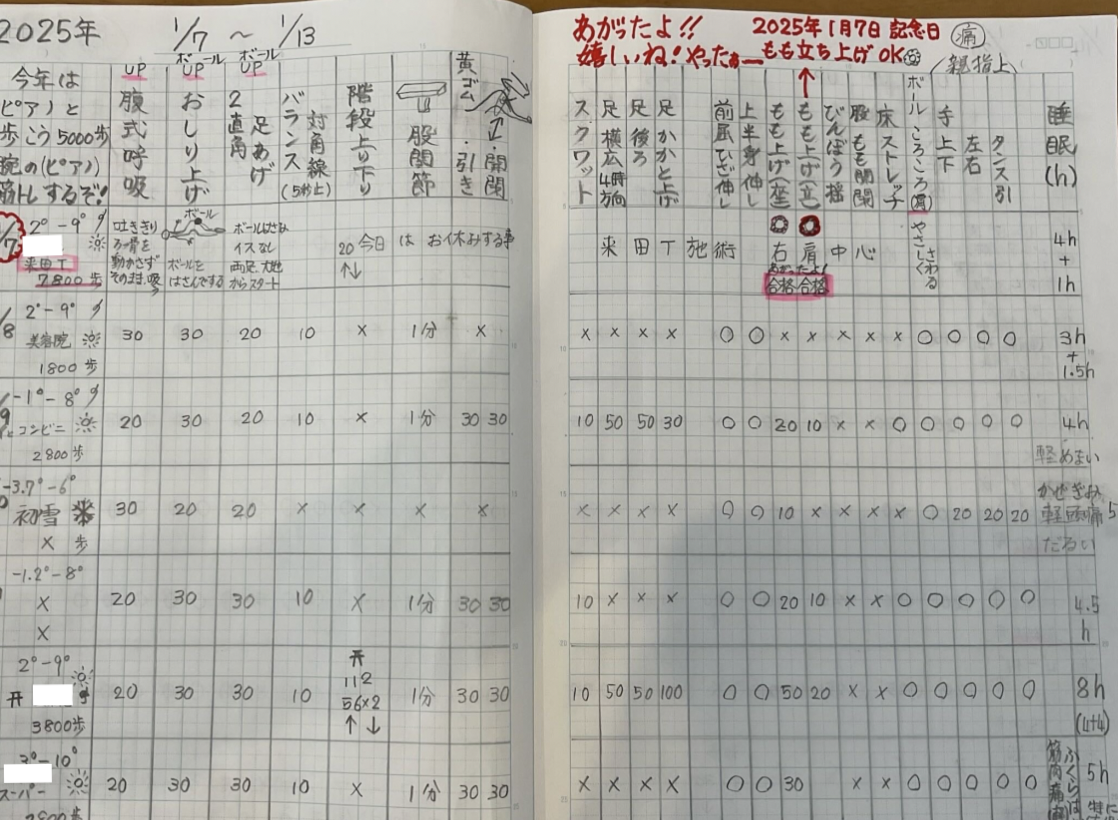 2025年
1/7 ～ 1/13
今年は
ピアノと
歩こう5000歩
腕の(ピアノ)
筋トレするぞ!
UP
腹式呼吸
ボール
UP
おしり上げ
ボール
UP
2直角
足あげ
バランス
対角線
(5秒止)
階段上り下り
股関節
黄ゴム
・引き
・開閉
2°-9°
来田T
7800歩
吐ききり
ろっ骨を
動かさず
そのまま、吸う
ボール
ボールを
はさんでする
ボールはさみ
イスなし
両足、大地
からスタート
20
↑↓
今日 は お休みする事
8
2°-9°
美容院
1800歩
30 30 20 10 × 1分 ×
9
-1°-8°
コンビニ
2800歩
20 30 20 10 × 1分 30 30
-3.7°-6°
初雪
× 歩
30 20 20 × × × ×
-1.2°-8°
×
×
20 30 30 10 × 1分 30 30
2°-9°
3800歩
20 30 30 10
112
56×2
↑↓
1分 30 30
3°-10°
スーパー
20 30 30 10 × 1分 30 30
あがったよ!!
嬉しいね!やったぁー
2025年1月7日 記念日
もも立ち上げOK
↑
痛
(親指上)
スクワット
足横広4時方向
足後ろ
足かかと上げ
前屈ひざ伸し
上半身伸し
もも上げ(座)
もも上げ(立)
びんぼう揺
股もも開閉
床ストレッチ
ボールころころ(肩)
手上下
左右
タンス引
睡眠(h)
来 田 T 施 術
右 肩 中 心
あがったよ!
合格 合格
やさしく
さわる
4h
+
1h
× × × × ○ ○ × × × × × ○ ○ ○ ○
3h
+
1.5h
10 50 50 30 ○ ○ 20 10 × × ○ ○ ○ ○ ○
4h
軽めまい
× × × × ○ ○ 10 × × × × ○ 20 20 20
かぜぎみ
軽頭痛
だるい
5
10 × × × ○ ○ 20 10 × × ○ ○ ○ ○ ○
4.5
h
10 50 50 100 ○ ○ 50 20 × × ○ ○ ○ ○ ○
8h
(4+4)
× × × × ○ ○ 30 × × ○ ○ ○ ○ ○
5h
ふくらは
筋肉痛